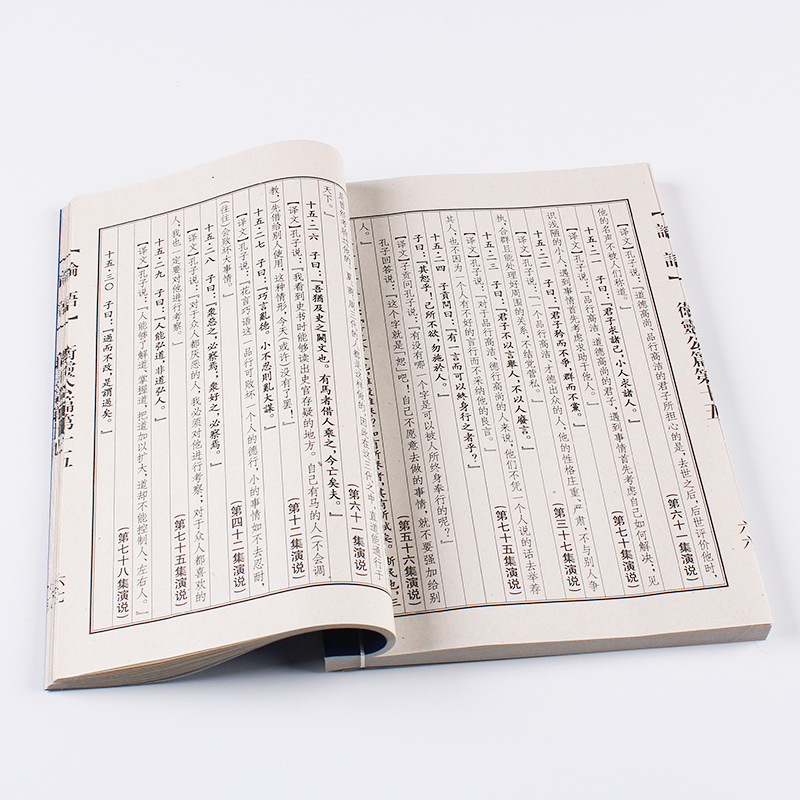 【論語】衛靈公篇第十五 六六
【译文】孔子说：『道德高尚、品行高洁的君子所担心的是，去世之后，后世评价他时，
他的名声不被人们称道。』（第六十一集演说）
十五·二一 子曰：『君子求諸己，小人求諸人。』
【译文】孔子说：『品行高洁、道德高尚的君子，遇到事情首先考虑自己如何解决，见
识浅陋的小人，遇到事情首先考虑求助于他人。』（第三十七集演说）
十五·二二 子曰：『君子矜而不爭，群而不黨。』
【译文】孔子说：『一个品行高洁、才德出众的人，他的性格庄重、严肃，不与别人争
执，合群且能处理好周围的关系，不结党营私。』（第七十五集演说）
十五·二三 子曰：『君子不以言舉人，不以人廢言。』
【译文】孔子说：『对于品行高洁、德行高尚的人来说，他们不凭一个人说的话去举荐
其人，也不因为一个人有不好的言行而不采纳他的良言。』（第五十六集演说）
十五·二四 子貢問曰：『有一言而可以終身行之者乎？』
子曰：『其恕乎！己所不欲，勿施於人。』
【译文】子贡问孔子说：『有没有哪一个字是可以被人所终身奉行的呢？』
孔子回答说：『这个字就是「恕」吧！自己不愿意去做的事情，就不要强加给别
人。』
天下。』（第六十一集演说）
十五·二六 子曰：『吾猶及史之闕文也。有馬者借人乘之，今亡矣夫。』
【译文】孔子说：『我看到史书时能够读出史官存疑的地方。自己有马的人（不会调
教，）先借给别人使用，这种情形，今天（或许）没有了罢！』（第十二集演说）
十五·二七 子曰：『巧言亂德。小不忍則亂大謀。』
【译文】孔子说：『花言巧语这一品行可败坏一个人的德行，小的事情如不去忍耐，
（往往）会败坏大事情。』（第四十二集演说）
十五·二八 子曰：『衆惡之，必察焉，衆好之，必察焉。』
【译文】孔子说：『对于众人都厌恶的人，我必须对他进行考察，对于众人都喜欢的
人，我也一定要对他进行考察。』（第七十五集演说）
十五·二九 子曰：『人能弘道，非道弘人。』
【译文】孔子说：『人能够了解道、掌握道，把道加以扩大，道却不能控制人、左右人。』
（第七十八集演说）
十五·三〇 子曰：『過而不改，是謂過矣。』
【論語】